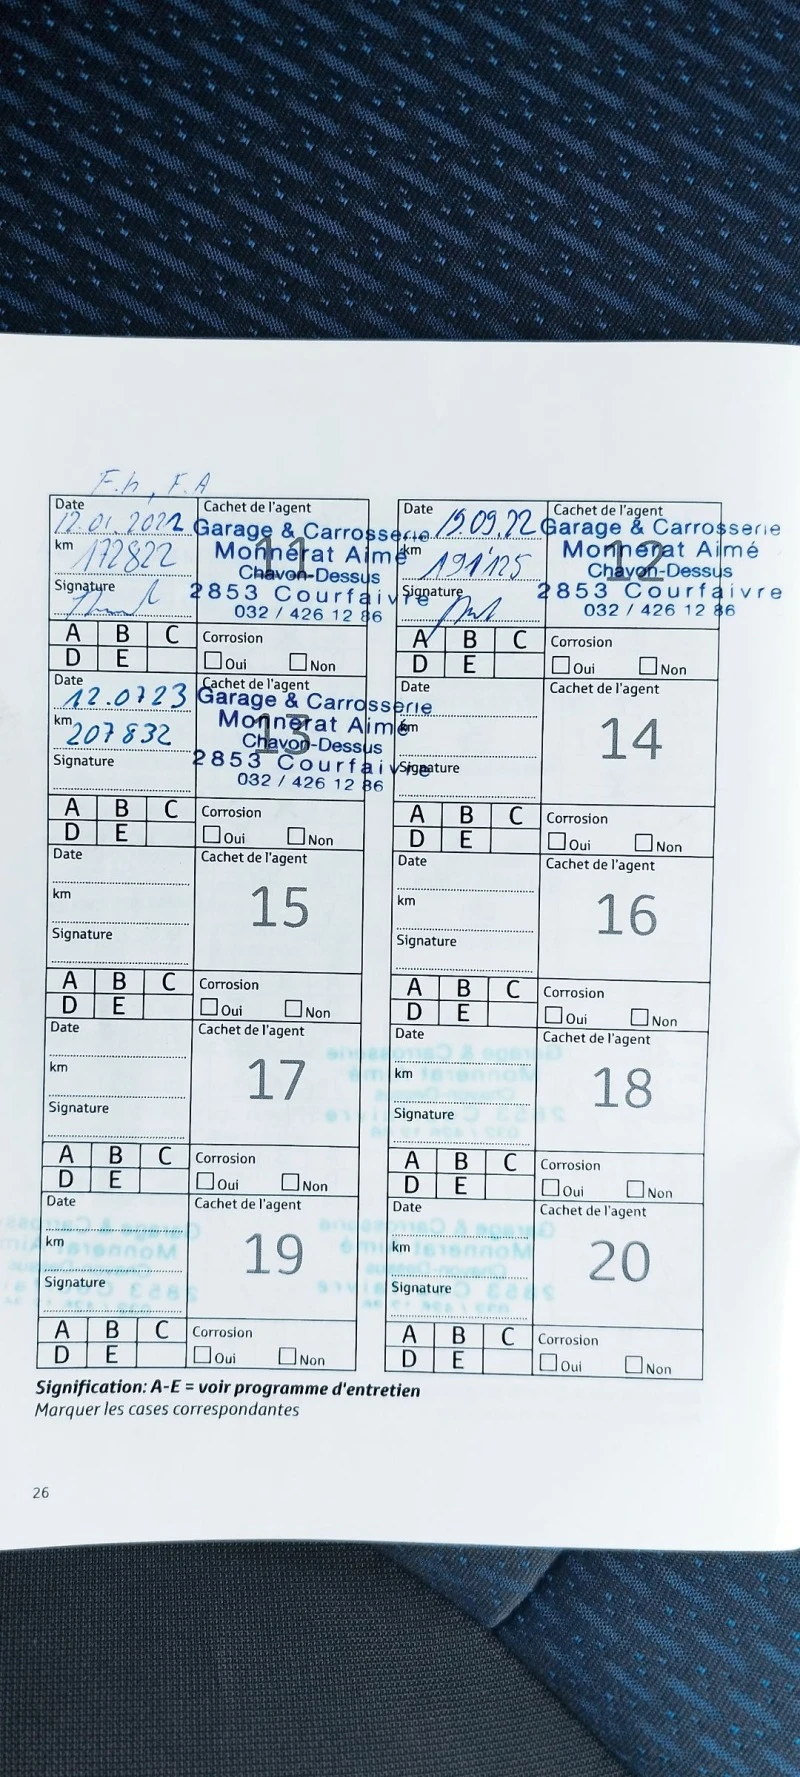 F.h, F.A
Date
12.01.2022
km
172822
Signature
Cachet de l'agent
11
Garage & Carrosserie
Monnerat Aimé
Chavon-Dessus
2853 Courfaivre
032 / 426 12 86
A B C
D E
Corrosion
Oui Non
Date
15.09.22
km
191'125
Signature
Cachet de l'agent
12
Garage & Carrosserie
Monnerat Aimé
Chavon-Dessus
2853 Courfaivre
032 / 426 12 86
A B C
D E
Corrosion
Oui Non
Date
12.0723
km
207832
Signature
Cachet de l'agent
13
Garage & Carrosserie
Monnerat Aimé
Chavon-Dessus
2853 Courfaivre
032 / 426 12 86
A B C
D E
Corrosion
Oui Non
Date
km
Signature
Cachet de l'agent
14
A B C
D E
Corrosion
Oui Non
Date
km
Signature
Cachet de l'agent
15
A B C
D E
Corrosion
Oui Non
Date
km
Signature
Cachet de l'agent
16
A B C
D E
Corrosion
Oui Non
Date
km
Signature
Cachet de l'agent
17
A B C
D E
Corrosion
Oui Non
Date
km
Signature
Cachet de l'agent
18
A B C
D E
Corrosion
Oui Non
Date
km
Signature
Cachet de l'agent
19
A B C
D E
Corrosion
Oui Non
Date
km
Signature
Cachet de l'agent
20
A B C
D E
Corrosion
Oui Non
Signification: A-E = voir programme d'entretien
Marquer les cases correspondantes
26